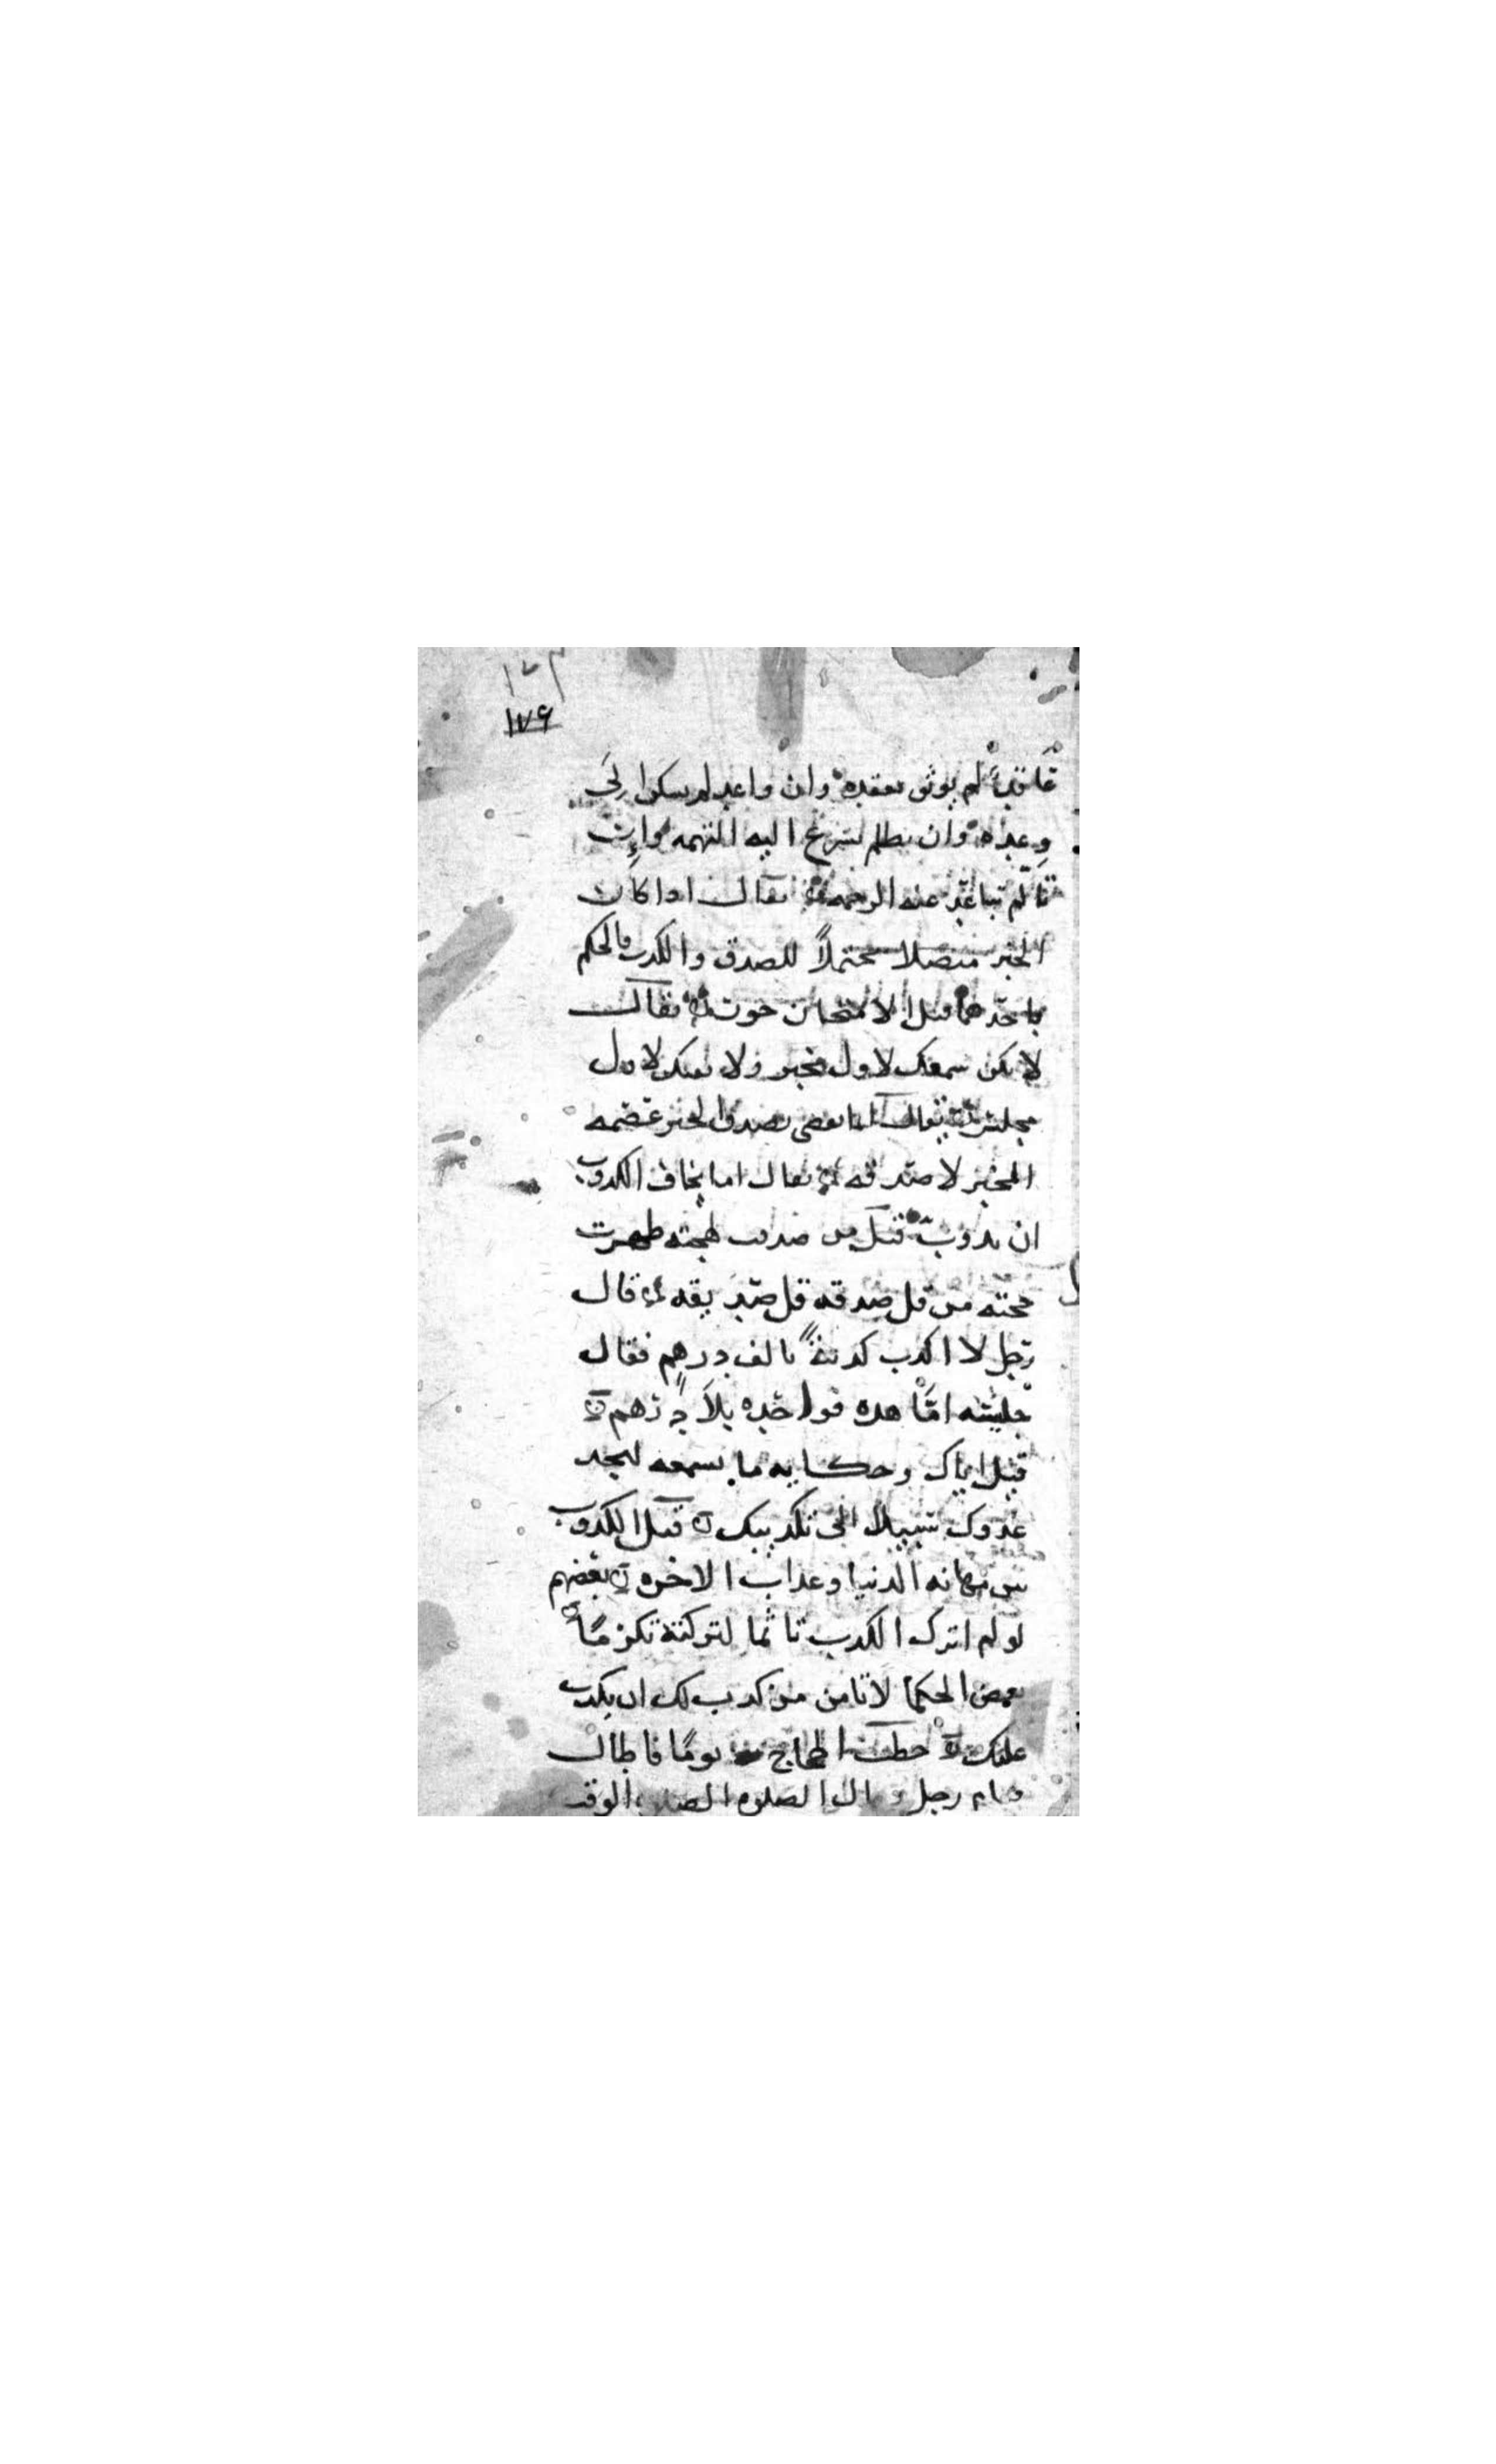 ١٧٣
١٧٤
عاقد لم يوثق بعقده وان واعد لم يسكن الى
وعده وان تظلم تسرع اليه التهمه وان
تالم تباعد عنه الرحمه يقال اذا كان
الخبر متصلا محتملاً للصدق والكذب فالحكم
باحدهما قبل الامتحان جور يقال
لا يكن سمعك لاول مخبر ولا ثقتك لاول
مجلس يقال انما يعصى بصدق الخبر عصمه
المخبر لا صدقه يقال اما يخاف الكذوب
ان يذوب قيل من صدقت لهجته ظهرت
حجته من قل صدقه قل صديقه قال
رجل لا اكذب كذبةً بالف درهم فقال
جليسه امّا هذه فواحده بلا درهم
قيل اياك وحكايه ما يسمعه ليجد
عدوك سبيلا الى تكذيبك قيل الكذوب
بين مهانه الدنيا وعذاب الاخره بعضهم
لو لم اترك الكذب تاثما لتركته تكرمًا
بعض الحكما لا تامن من كذب لك ان يكذب
عليك خطب الحجاج يومًا فاطال
فقام رجل وقال الصلوه الصلوه الوقت